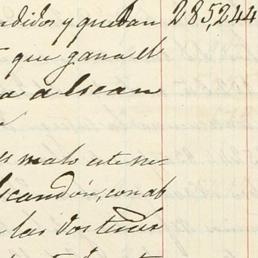 ndidos y quedan 285,244
que gana el
a a Escan
es malo este ne
scandón, con ab
las dos tercs